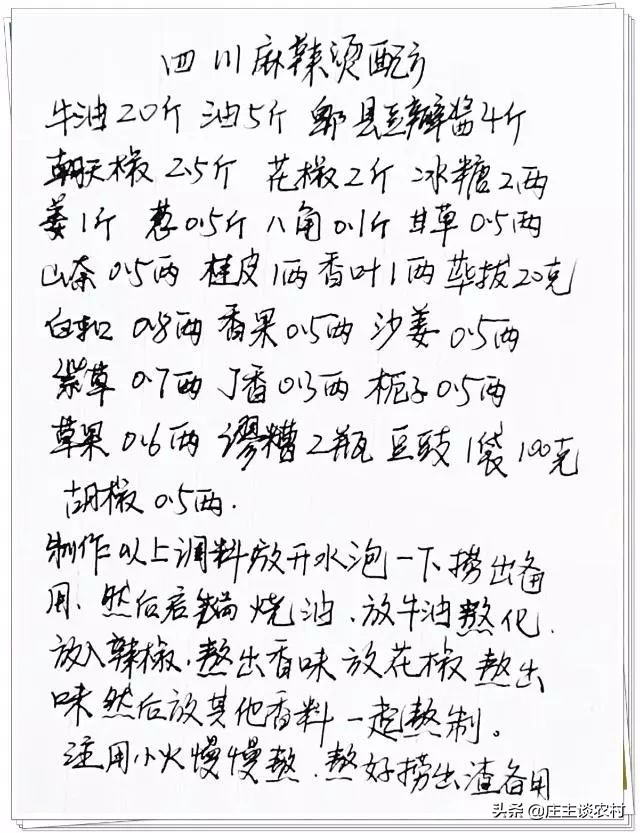 四川麻辣烫配方
牛油20斤 油5斤 郫县豆瓣酱4斤
朝天椒 2.5斤 花椒2斤 冰糖2两
姜1斤 葱0.5斤 八角0.1斤 甘草0.5两
山奈0.5两 桂皮1两香叶1两荜拔20克
白扣 0.8两 香果0.5两 沙姜0.5两
紫草 0.7两 丁香0.3两 栀子0.5两
草果 0.6两 醪糟2瓶 豆豉1袋100克
胡椒0.5两.
制作以上调料放开水泡一下捞出备
用.然后启锅烧油.放牛油熬化.
放入辣椒.熬出香味放花椒熬出
味然后放其他香料一起熬制。
注用小火慢慢熬.熬好捞出渣备用
头条@庄主谈农村